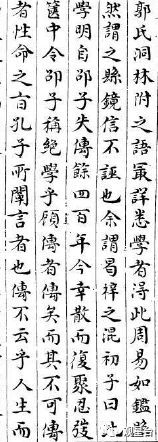 郭氏洞林附之語最詳悉學者得此周易如鑑
然謂之縣鏡信不誣也余謂曷梓之混初子曰
學明自邵子失傳餘四百年今幸散而復聚忍弢
篋中令邵子稱絕學乎顧傳者傳矣而其不可傳
者性命之旨孔子所聞言者也傳不云乎人生而